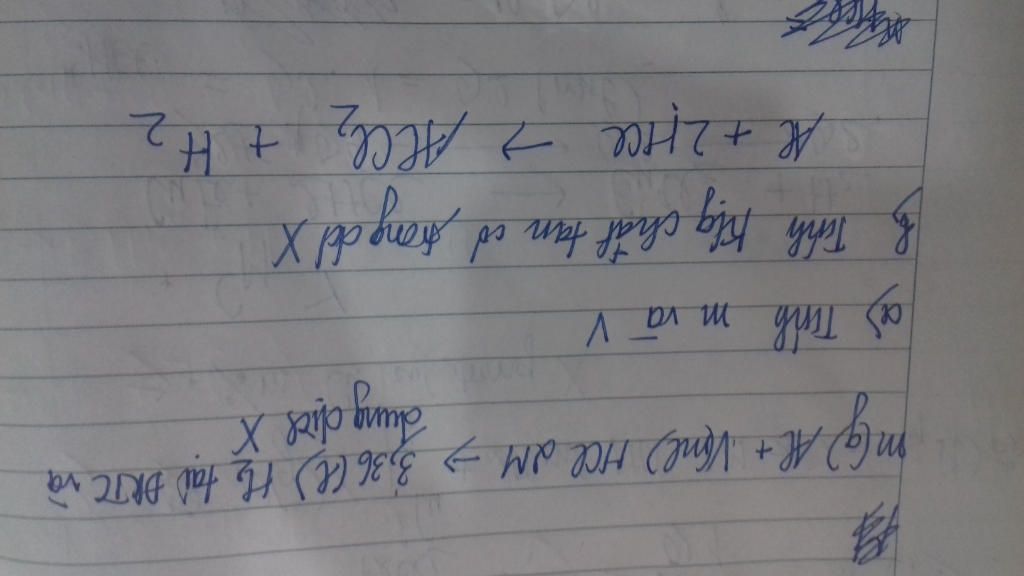 m(g) Al + V(ml) HCl 2M → 3,36 (l) H₂ tại ĐKTC và
dung dịch X
a) Tính m và V
b) Tính klg chất tan có trong dd X
Al + 2HCl → AlCl₂ + H₂